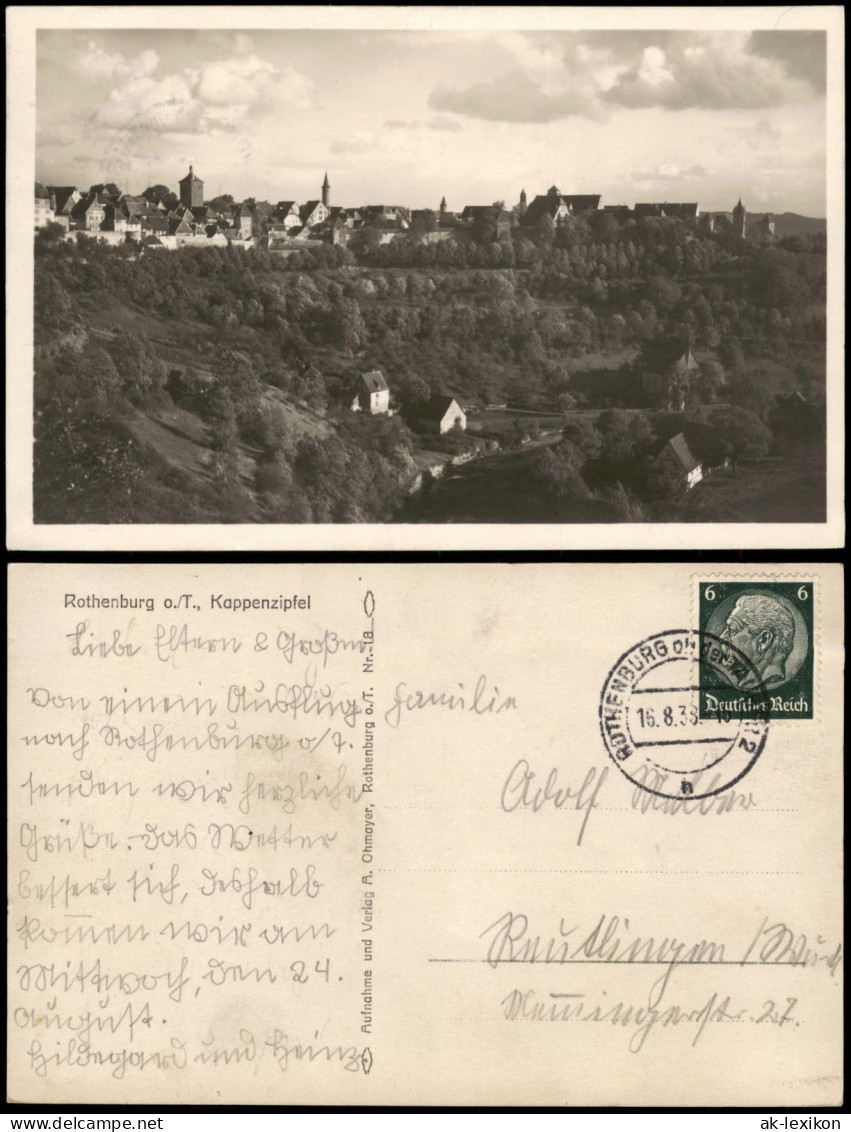 Rothenburg o./T., Kappenzipfel
Liebe Eltern & Großm.
von einem Ausflug
nach Rothenburg o/T.
senden wir herzliche
Grüße. Das Wetter
bessert sich, deshalb
kommen wir am
Mittwoch, den 24.
August.
Hildegard und Heinz.
Aufnahme und Verlag A. Ohmayer, Rothenburg o./T. Nr. 18
6 6
Deutsches Reich
ROTHENBURG ob der TAUBER 2
16.8.38.
n
Familie
Adolf
Reutlingen /Württ
27.
ak-lexikon